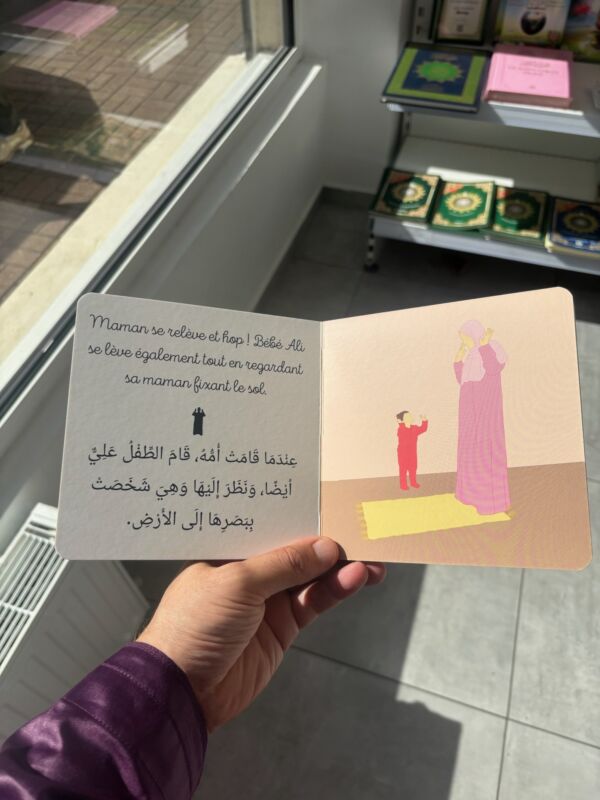 Maman se relève et hop ! Bébé Ali
se lève également tout en regardant
sa maman fixant le sol.
عِنْدَمَا قَامَتْ أُمُّهُ، قَامَ الطِّفْلُ عَلِيٌّ
أَيْضًا، وَنَظَرَ إِلَيْهَا وَهِيَ شَخَصَتْ
بِبَصَرِهَا إِلَى الأَرْضِ.